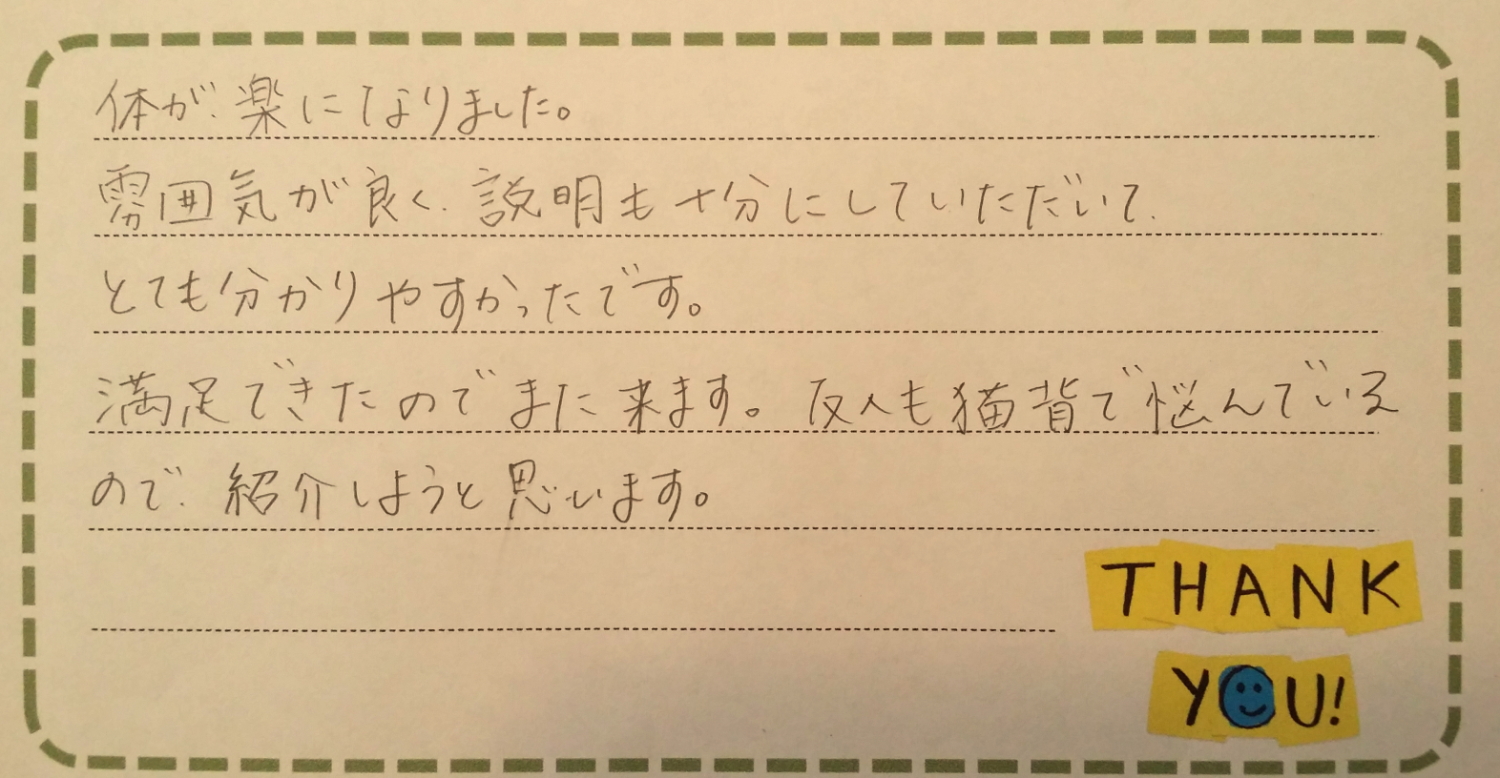 体が、楽になりました。
雰囲気が良く、説明も十分にしていただいて、
とても分かりやすかったです。
満足できたのでまた来ます。友人も猫背で悩んでいる
ので、紹介しようと思います。
THANK
YOU!